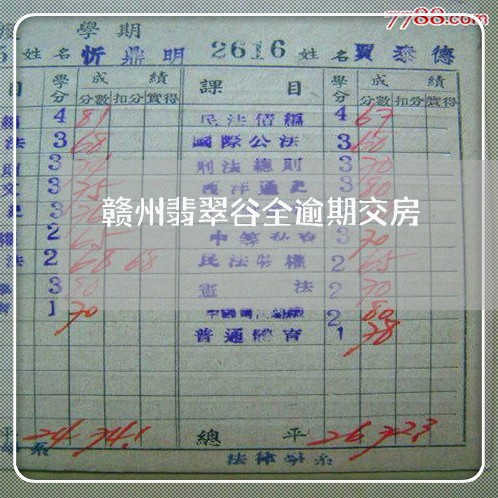 7788.com
學期
姓名 忻鼎明 2616 姓名 賈泰德
目 學分 成績 課目 學分 成績
分數 扣分 實得 分數 扣分 實得
4 81 民法債編 4 67
法 3 68 國際公法 3 60
3 刑法總則 3 70
3 75 西洋通史 3 80
赣州翡翠谷全逾期交房
2 65 3 70
法 2 68 68 民法物權 2 65
3 80 憲法 2 70
1 70 2 80
普通體育 1 78
平 24 74.1 總平 26 72.3
系 法律學系